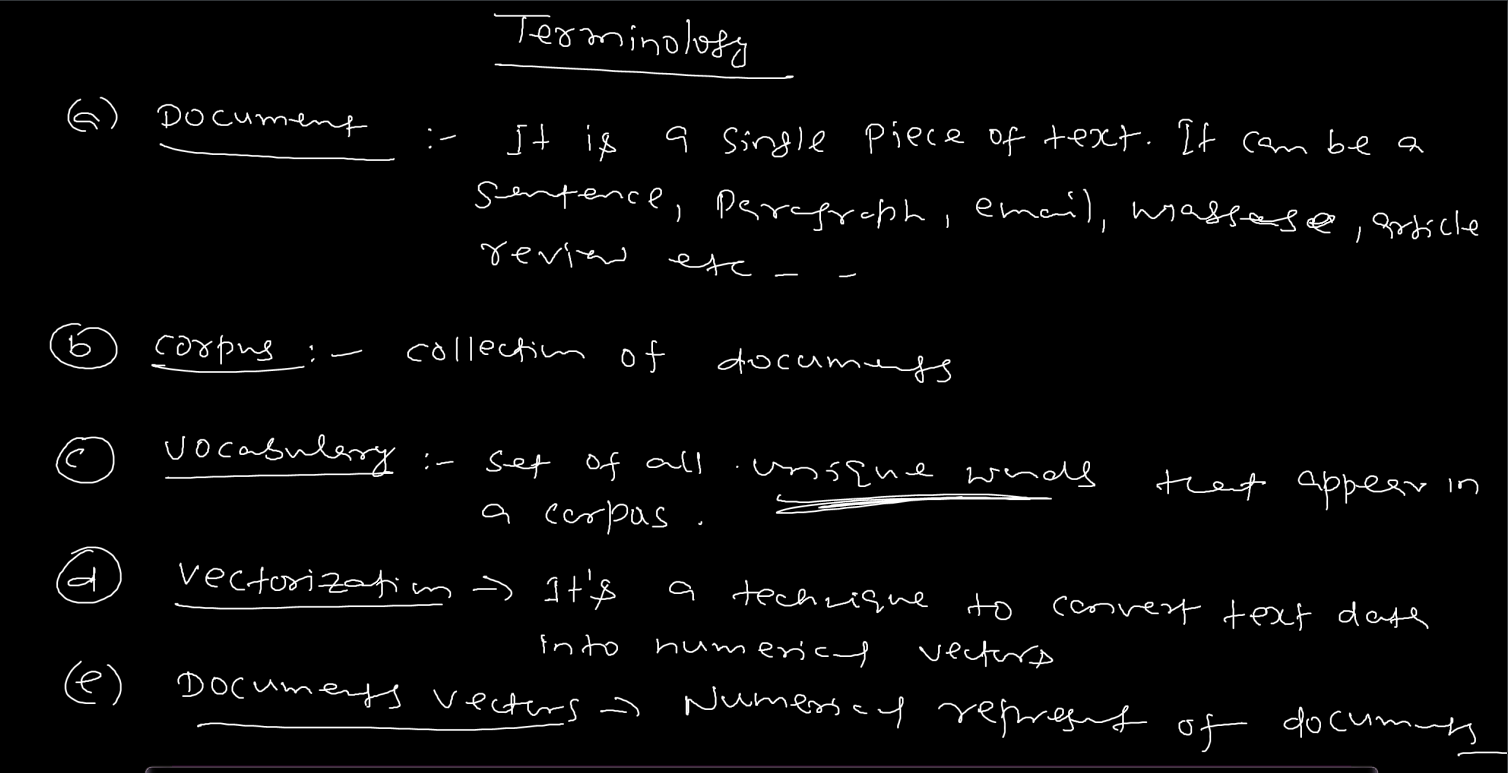 Terminology
(a) Document :- It is a single piece of text. It can be a
sentence, paragraph, email, message, article
review etc - -
(b) corpus :- collection of documents
(c) vocabulary :- set of all unique words that appear in
a corpus.
(d) vectorization → It's a technique to convert text data
into numerical vectors
(e) Documents vectors → Numerical represent of documents